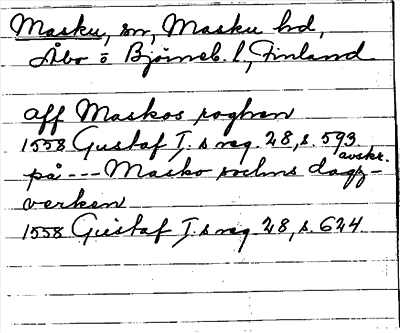 Masku, sn, Masku hd,
Åbo o Björneb. l, Finland.
aff Maskos soghen
1558 Gustaf I.s reg. 28, s. 593
avskr.
på --- Masko sochns dagz-
verken
1558 Gustaf I.s reg. 28, s. 624